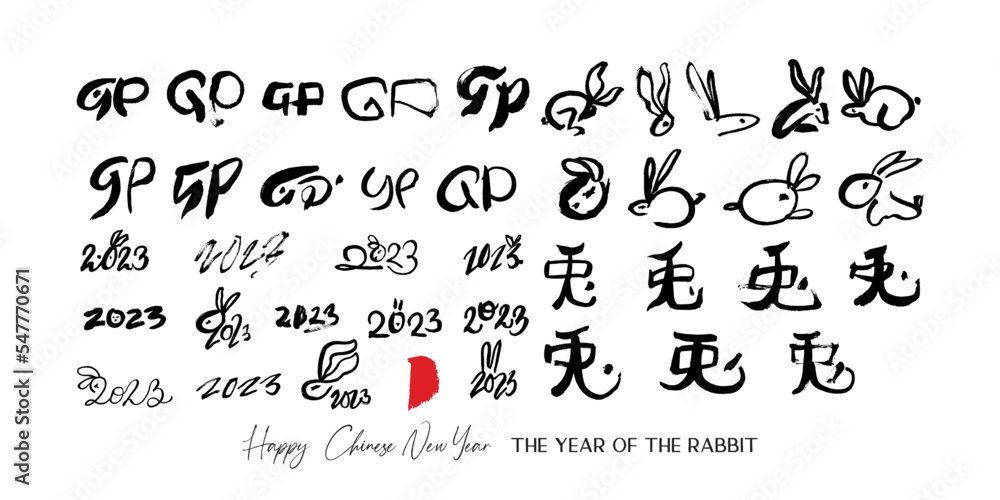 GP GP GP GP GP
GP GP GP YP GP
2023 2023 2023 2023
2023 2023 2023 2023 2023
2023 2023 2023 2023
兎 兎 兎 兎
兎 兎 兎
Happy Chinese New Year THE YEAR OF THE RABBIT
Adobe Stock | #547770671